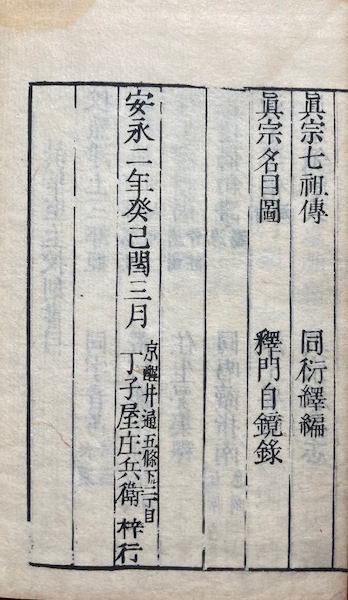 眞宗七祖傳　同衍繹編
眞宗名目圖　釋門自鏡錄
安永二年癸巳閏三月
京醒井通五條下ル二丁目
丁子屋庄兵衞　梓行